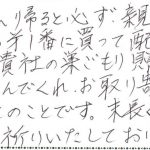 り帰ると必ず、親
第1番に買って配
貴社の巣ごもり
んでくれ、お取り
とのことです。末長く
祈りいたしてお